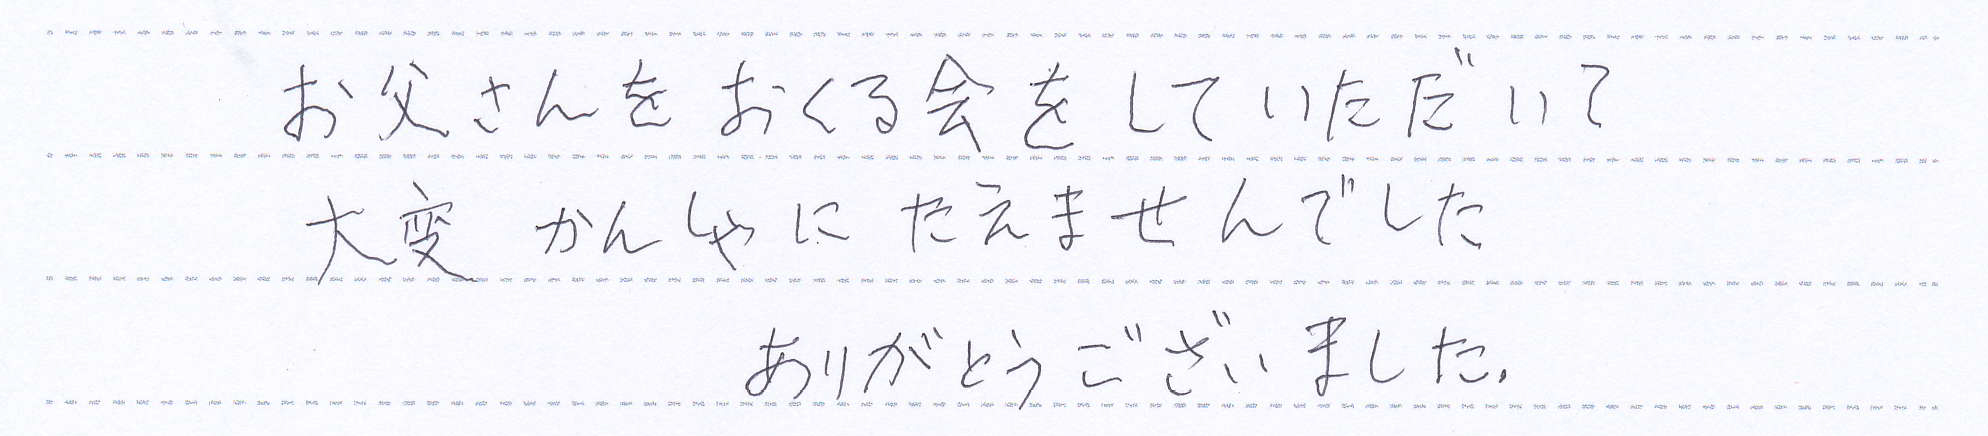 お父さんをおくる会をしていただいて
大変 かんしゃに たえませんでした
ありがとうございました.